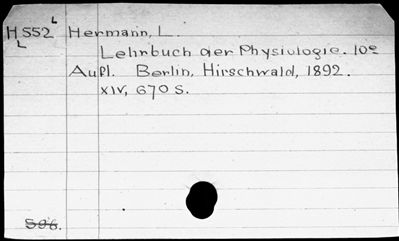 L
H 552 Hermann, L.
L
Lehrbuch der Physiologie. 10e
Aufl. Berlin, Hirschwald, 1892.
XIV, 670 S.
596.